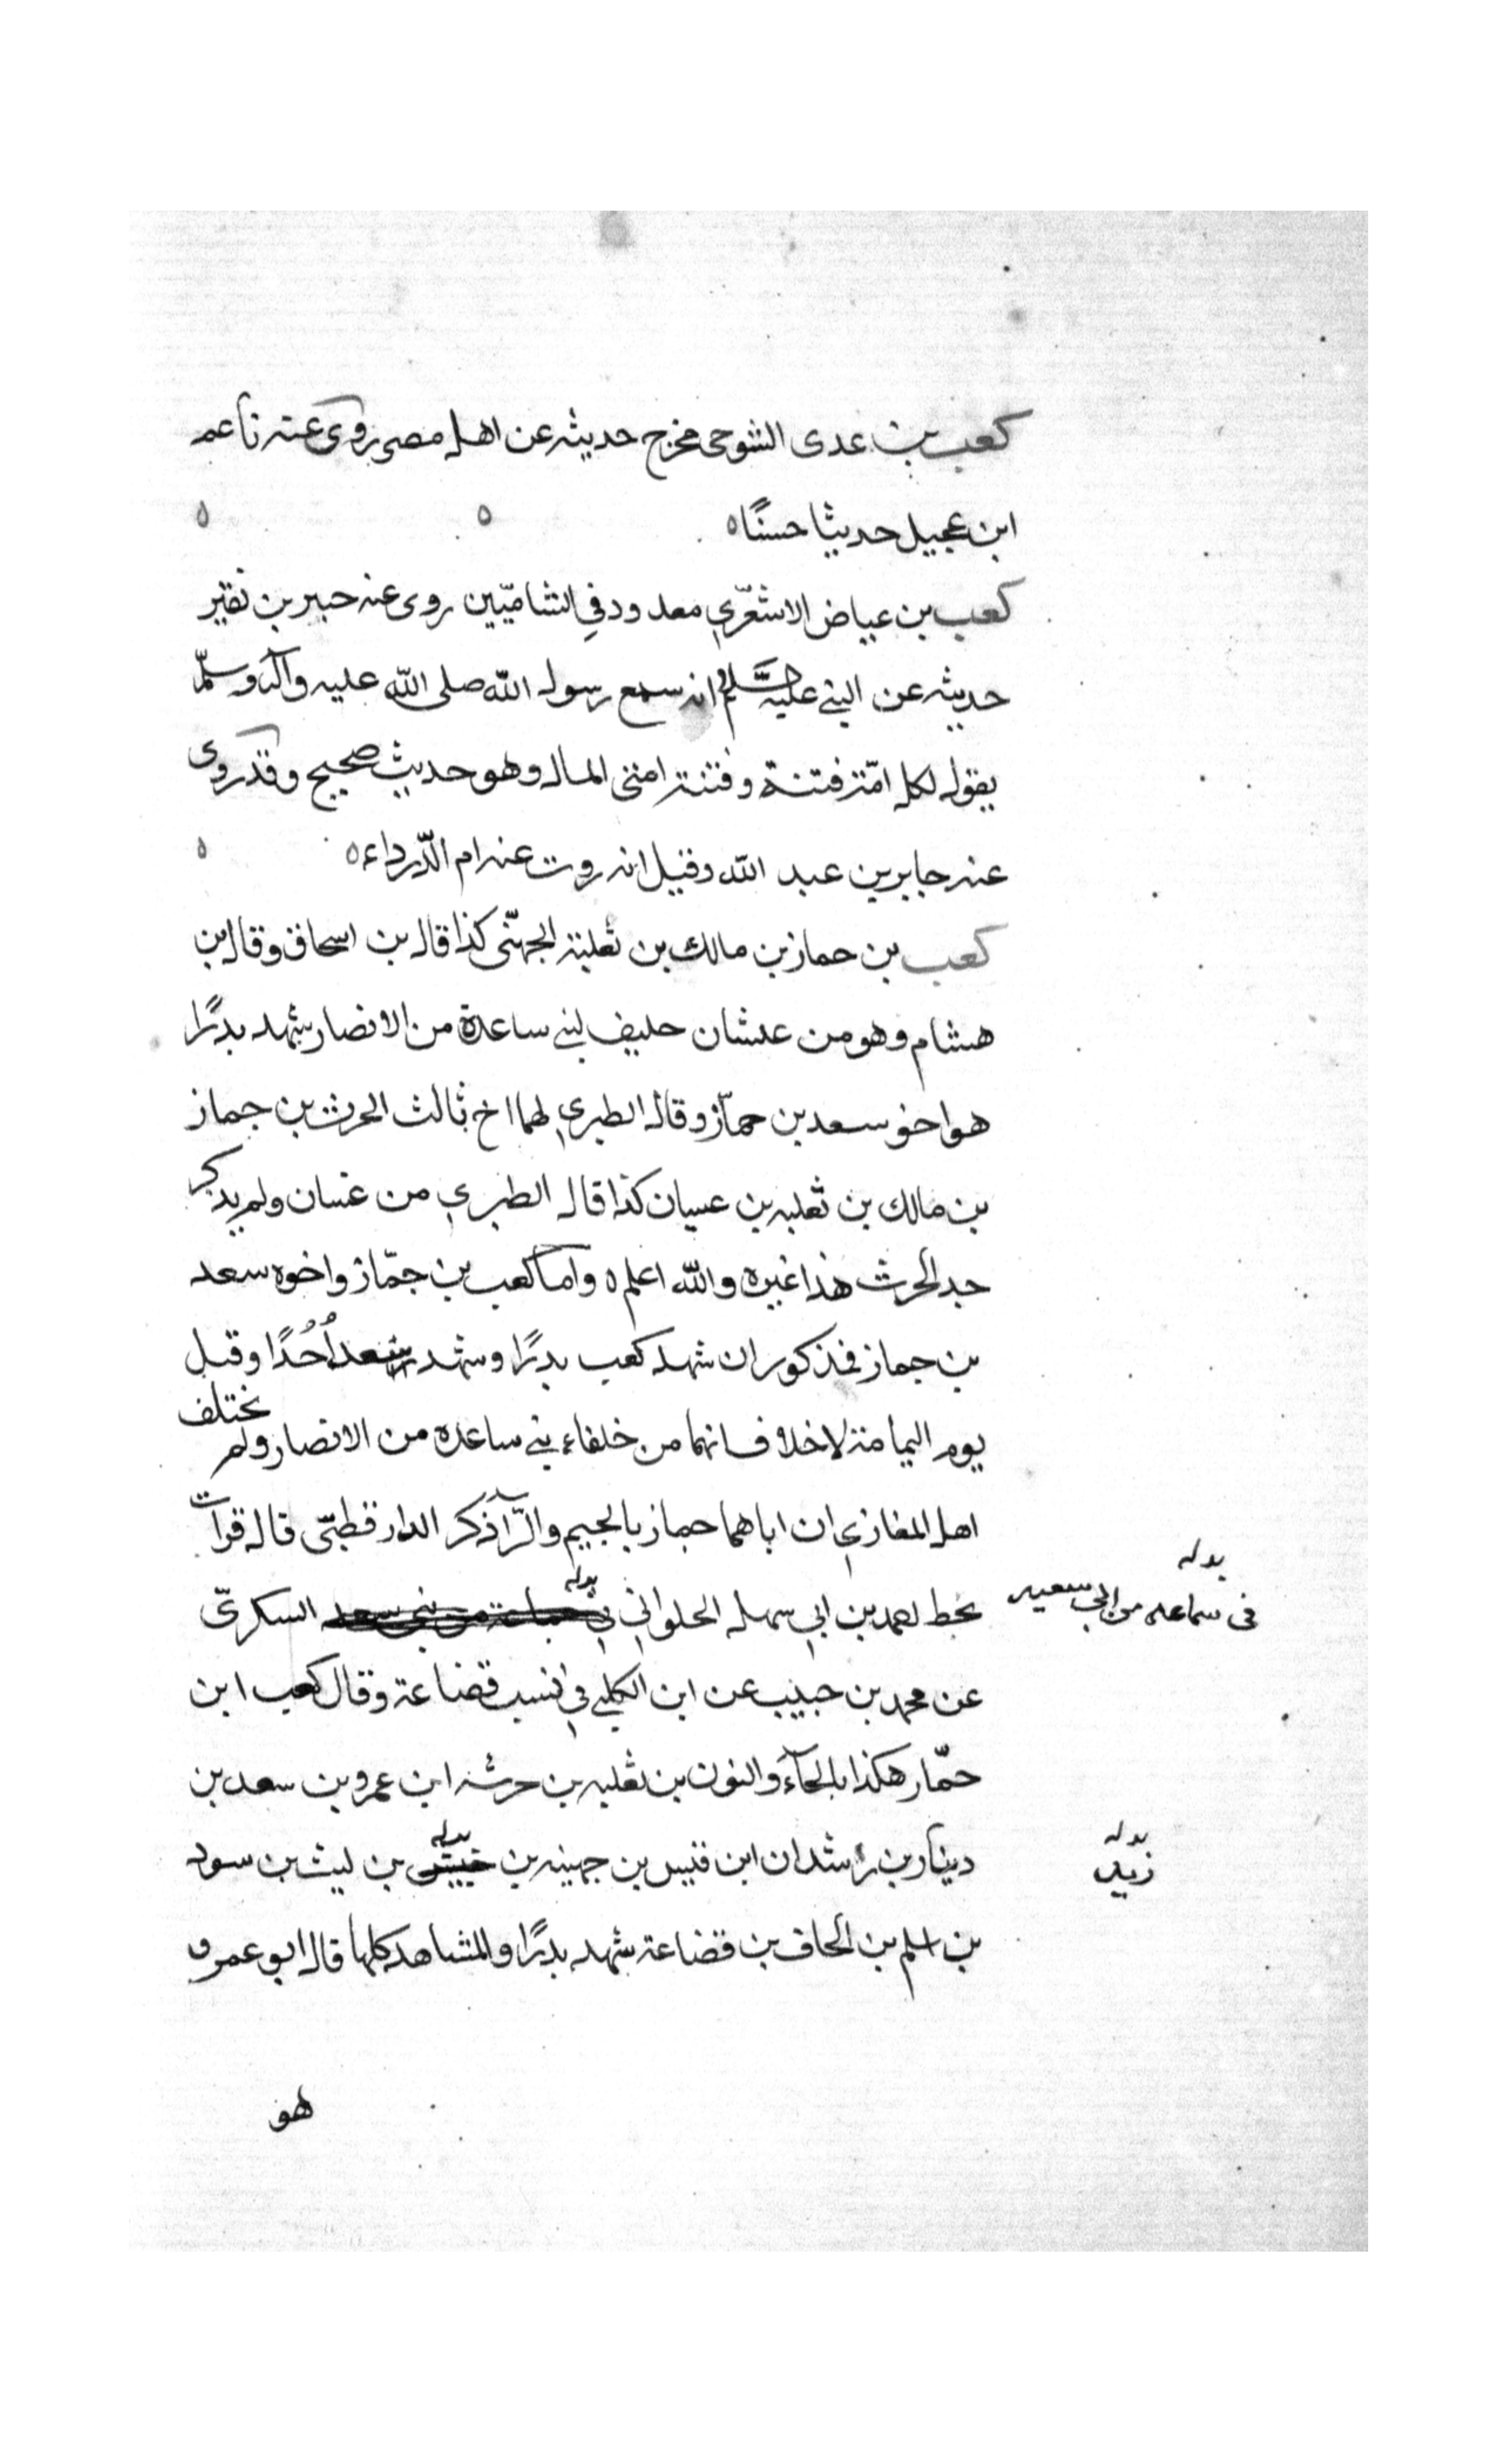 كعب بن عدى التنوحى مخرج حديثه عن اهل مصر روى عنه ناعم
ابن عجيل حديثا حسنًا ه ه ه
كعب بن عياض الاشعّري معدود في الشاميّين روى عنه جبير بن نفير
حديثه عن النبي عليه السلام انه سمع رسول الله صلى الله عليه وآله وسلّم
يقول لكل امّة فتنة وفتنة امتى المال وهو حديث صحيح وقد روى
عنه جابر بن عبد الله وقيل انه روت عنه ام الدّرداء ه ه
كعب بن حماز بن مالك بن ثعلبة الجهنّى كذا قال بن اسحاق وقال بن
هشام وهو من عنشان حليف لبني ساعدة من الانصار شهد بدرًا
هو اخو سعد بن حمّاز وقال الطبري لهما اخ ثالث الحرث بن جماز
بن مالك بن ثعلبه بن عسيان كذا قال الطبري من غسان ولم يذكر
جد الحرث هذا غيره والله اعلم ه واما كعب بن جمّاز واخوه سعد
بن جماز فمذكوران شهد كعب بدرًا وشهد سعد اُحُدًا وقبل
يوم اليمامة لاخلاف انهما من خلفاء بني ساعده من الانصار ولم يختلف
اهل المغازي ان اباهما حماز بالجيم والزّآ ذكر الدارقطنّى قال قرآت
بخط احمد بن ابي سهل الحلواني في بدله جماعة من بنى سعد السكرىّ
بدله
فى سماعه من ابى سعيد
عن محمد بن حبيب عن ابن الكلبي في نسب قضاعة وقال كعب ابن
حمّار هكذا بالحآء والنون بن ثعلبه بن حرشه ابن عمرو بن سعد بن
دينار بن رشدان ابن قيس بن جهينه بن بدله بن ليث بن سود
بدله
زيد
بن اسلم بن الحاف بن قضاعة شهد بدرًا والمشاهد كلها قال ابو عمرو
هو